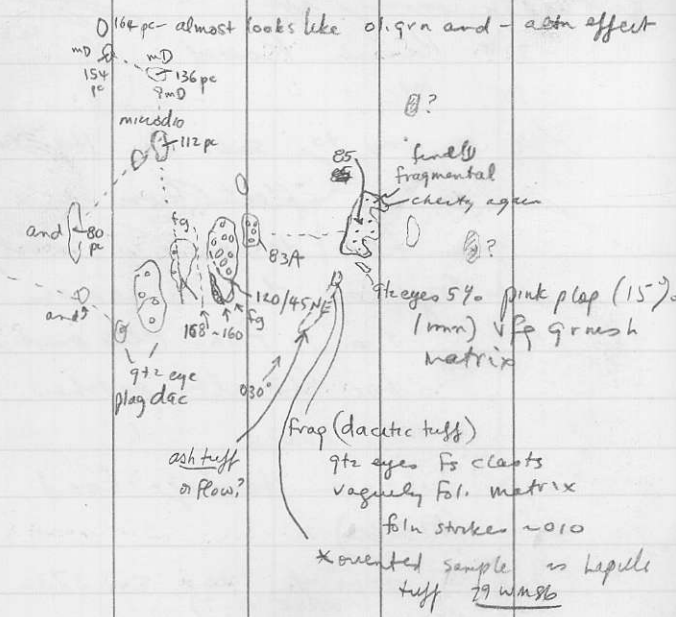 164 pc - almost looks like ol. grn and - actn effect
mD
154
pc
mD
136 pc
?mD
microdio
112 pc
?
85
85
fragmental
cherty again
and
80
pc
fg
83A
?
and?
120/45NE
fg
168 ~160
qtz eyes 5% pink plag (15%)
(1mm) v fg grnish
matrix
qtz eye
plag dac
030°
ash tuff
or flow?
frag (dacitic tuff)
qtz eyes Fs clasts
vaguely Fol. matrix
foln strikes ~010
* oriented sample is Lapilli
tuff